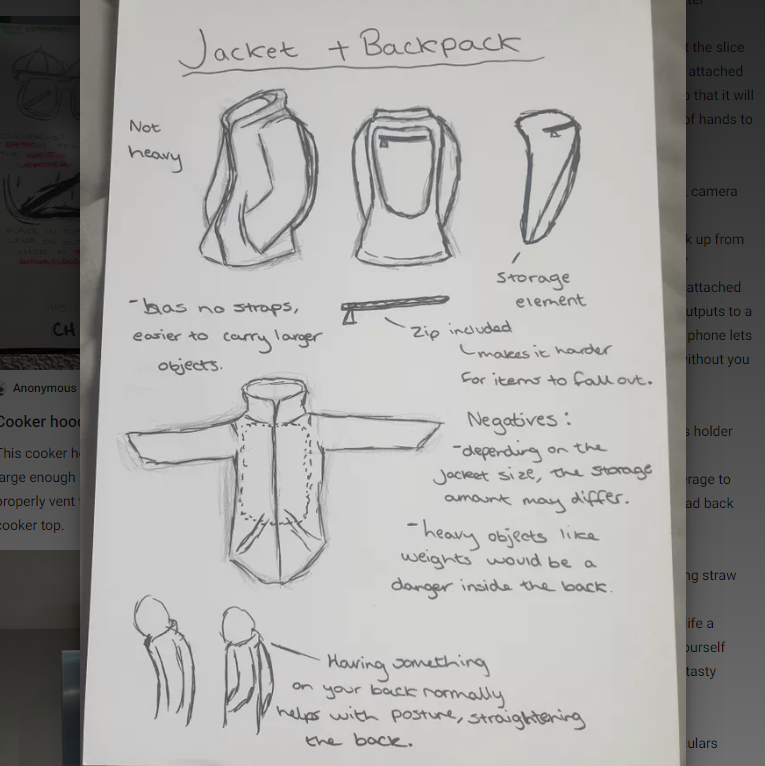 Jacket + Backpack
Not
heavy
Storage
element
- has no straps,
easier to carry larger
objects.
Zip included
makes it harder
for items to fall out.
Negatives:
- depending on the
jacket size, the storage
amount may differ.
- heavy objects like
weights would be a
danger inside the back.
Having something
on your back normally
helps with posture, straightening
the back.
CH
Anonymous
Cooker hood
This cooker h
large enough
properly vent
cooker top.
t the slice
attached
that it will
of hands to
camera
k up from
attached
utputs to a
phone lets
ithout you
s holder
rage to
ad back
ng straw
ife a
ourself
tasty
ulars